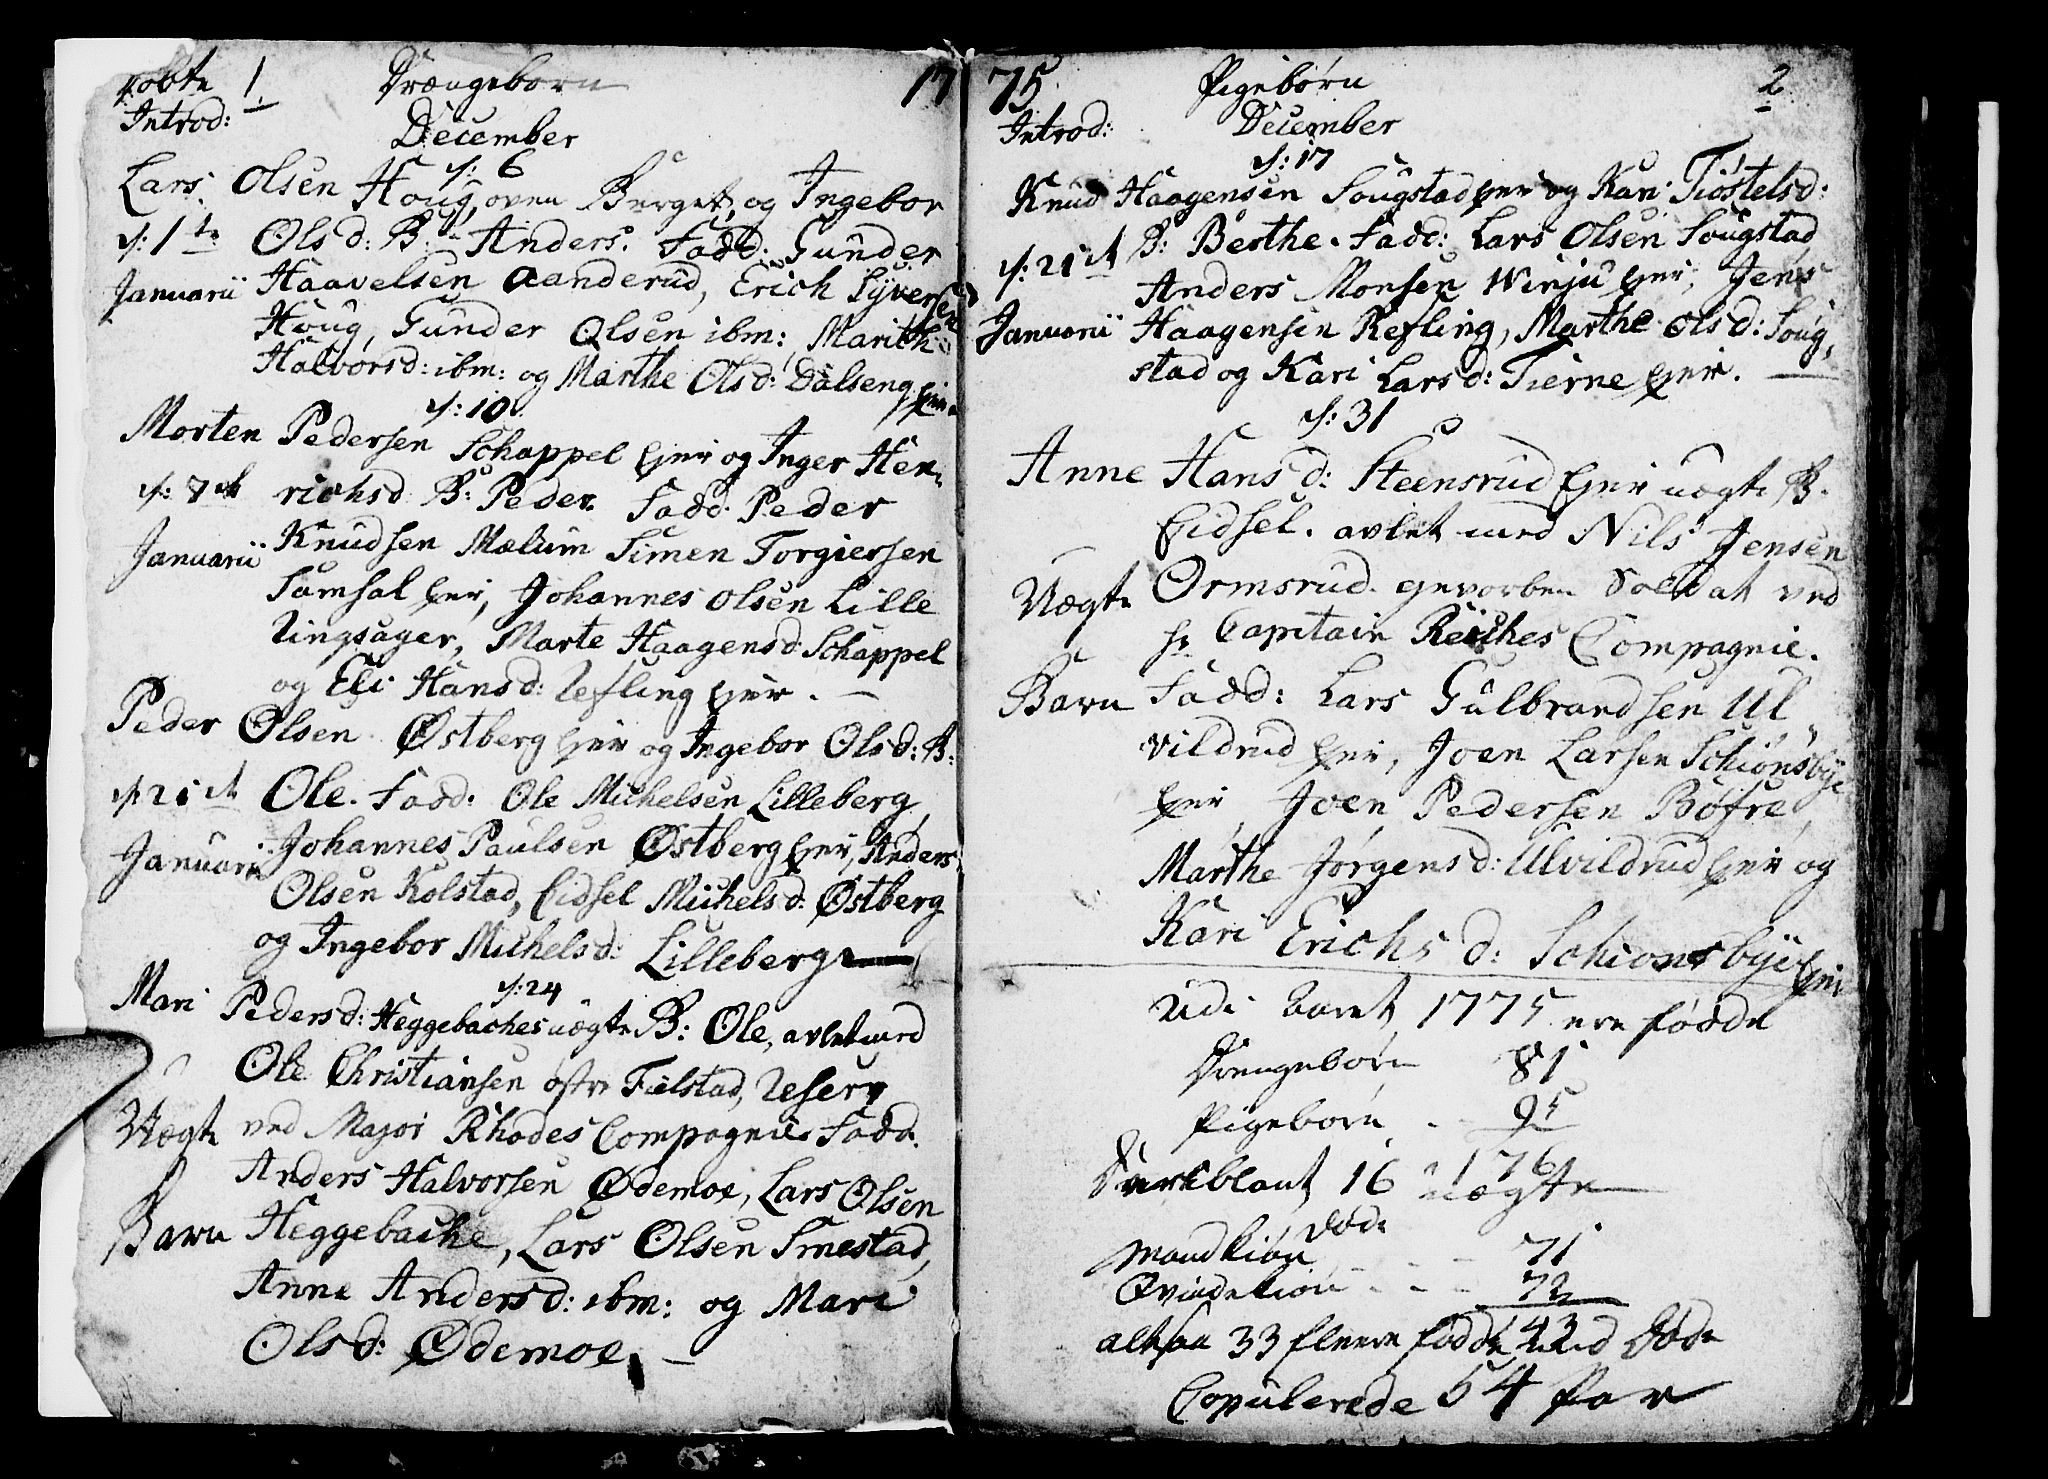 Døbte 1. Drængebørn 17
Introd:
December
d: 6
Lars Olsen Houg, oven Berget, og Ingebor
d: 1te Olsd: B: Anders. Fadd: Gunder
Januarii Haavelsen Aanderud, Erich Syversen
Houg, Gunder Olsen ibm:, Marith
Halvorsd: ibm: og Marthe Olsd: Dalseng Ejer.
d: 10
Morten Pedersen Schappel Ejer og Inger Hen,
d: 7de richsd B: Peder. Fadd. Peder
Januarii Knudsen Mælum Simen Torgiersen
Samsal Ejer, Johannes Olsen Lille
Ringsager, Marte Haagensd: Schappel
og Eli Hansd: Refling Ejer. —
Peder Olsen Østberg Ejer og Ingebor Olsd: B:
d: 21de Ole. Fadd: Ole Michelsen Lilleberg,
Januarii Johannes Paulsen Østberg Ejer, Anders
Olsen Kolstad, Eidsel Michelsd: Østberg
og Ingebor Michelsd: Lilleberg
d: 24
Mari Pedersd: Heggebaches uægte B: Ole, avlet med
Ole Christiansen østre Fælstad, Reserv
Uægte ved Major Rhodes Compagnie. Fadd.
Anders Halvorsen Ødemoe, Lars Olsen
Barn Heggebache, Lars Olsen Smestad,
Anne Andersd: ibm: og Mari
Olsd: Ødemoe. —
75. Pigebørn 2
Introd: December
d: 17
Knud Haagensen Sougstad Ejer og Kari Tiostelsd:
d: 21de B: Berthe. Fadd: Lars Olsen Sougstad
Anders Monsen Winju Ejer, Jens
Januarii Haagensen Refling, Marthe Olsd: Soug,
stad og Kari Larsd: Tierne Ejer. —
d: 31
Anne Hansd: Steensrud Ejer uægte B.
Eidsel. avlet med Nils Jensen
Uægte Ormsrud. gevorben Soldat ved
Hr Capitain Reiches Compagnie.
Barn Fadd: Lars Gulbrandsen Ul,
vildrud Ejer, Joen Larsen Schiønsbye
Ejer, Joen Pedersen Bøfre,
Marthe Jørgensd: Ulvildrud Ejer og
Kari Erichsd: Schionsbye Ejer
Udi Aaret 1775 ere fødde
Drengebørn 81
Pigebørn . - 95
176
Deriblant 16 uægte
Døde
Mandkiøn - 71
Qvindekiøn - - - 72
altsaa 33 fleere fødde 143 end Døde
Copulerede 54 Par